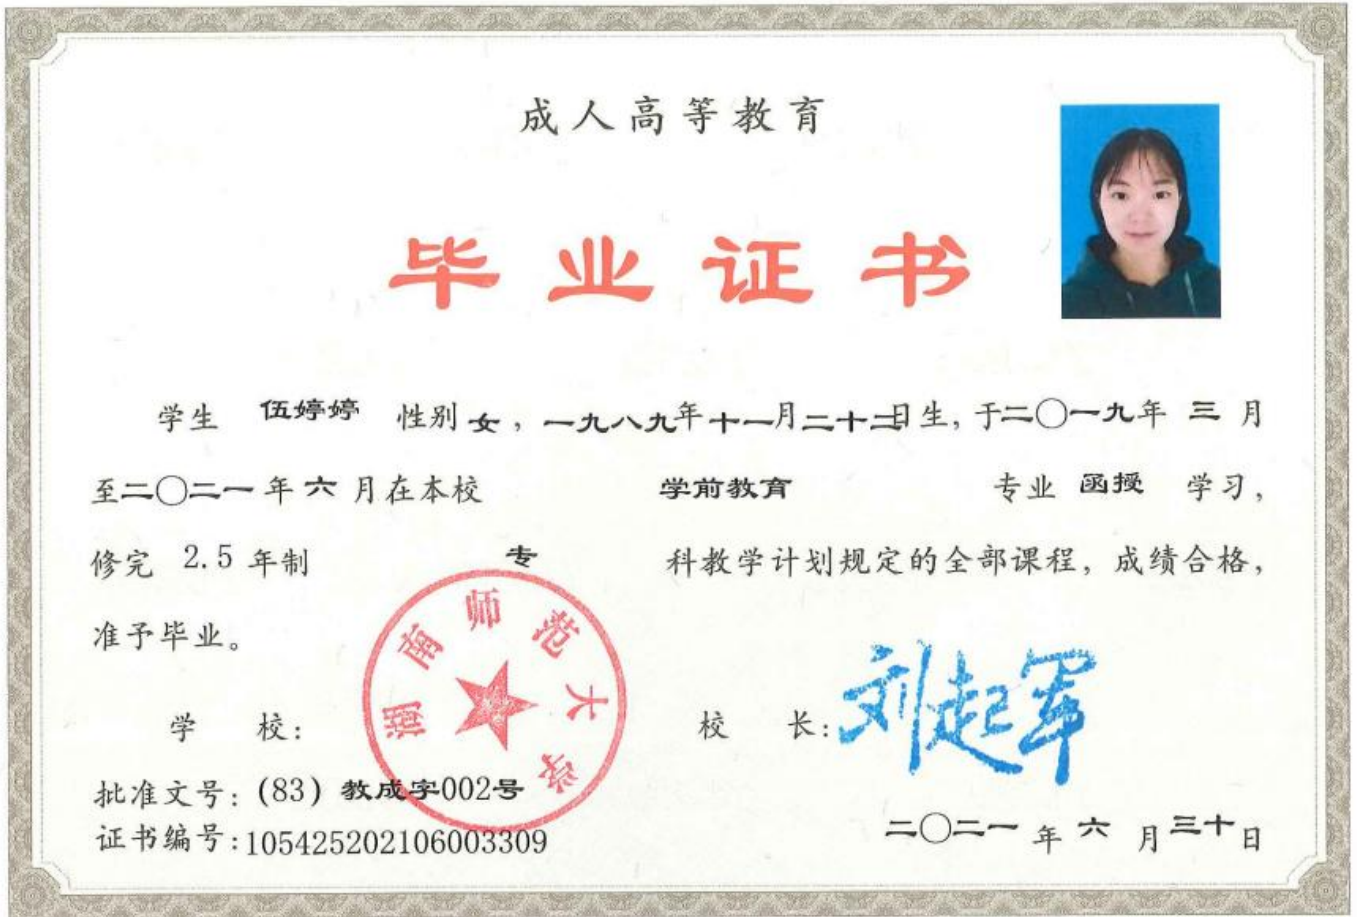 成人高等教育
毕业证书
学生 伍婷婷 性别 女，一九八九年十一月二十二日生，于二〇一九年 三 月
至二〇二一年 六 月在本校 学前教育 专业 函授 学习，
修完 2.5 年制 专 科教学计划规定的全部课程，成绩合格，
准予毕业。
学 校： 湖南师范大学
校 长：刘起军
批准文号：(83) 教成字002号
证书编号：105425202106003309
二〇二一 年 六 月 三十日